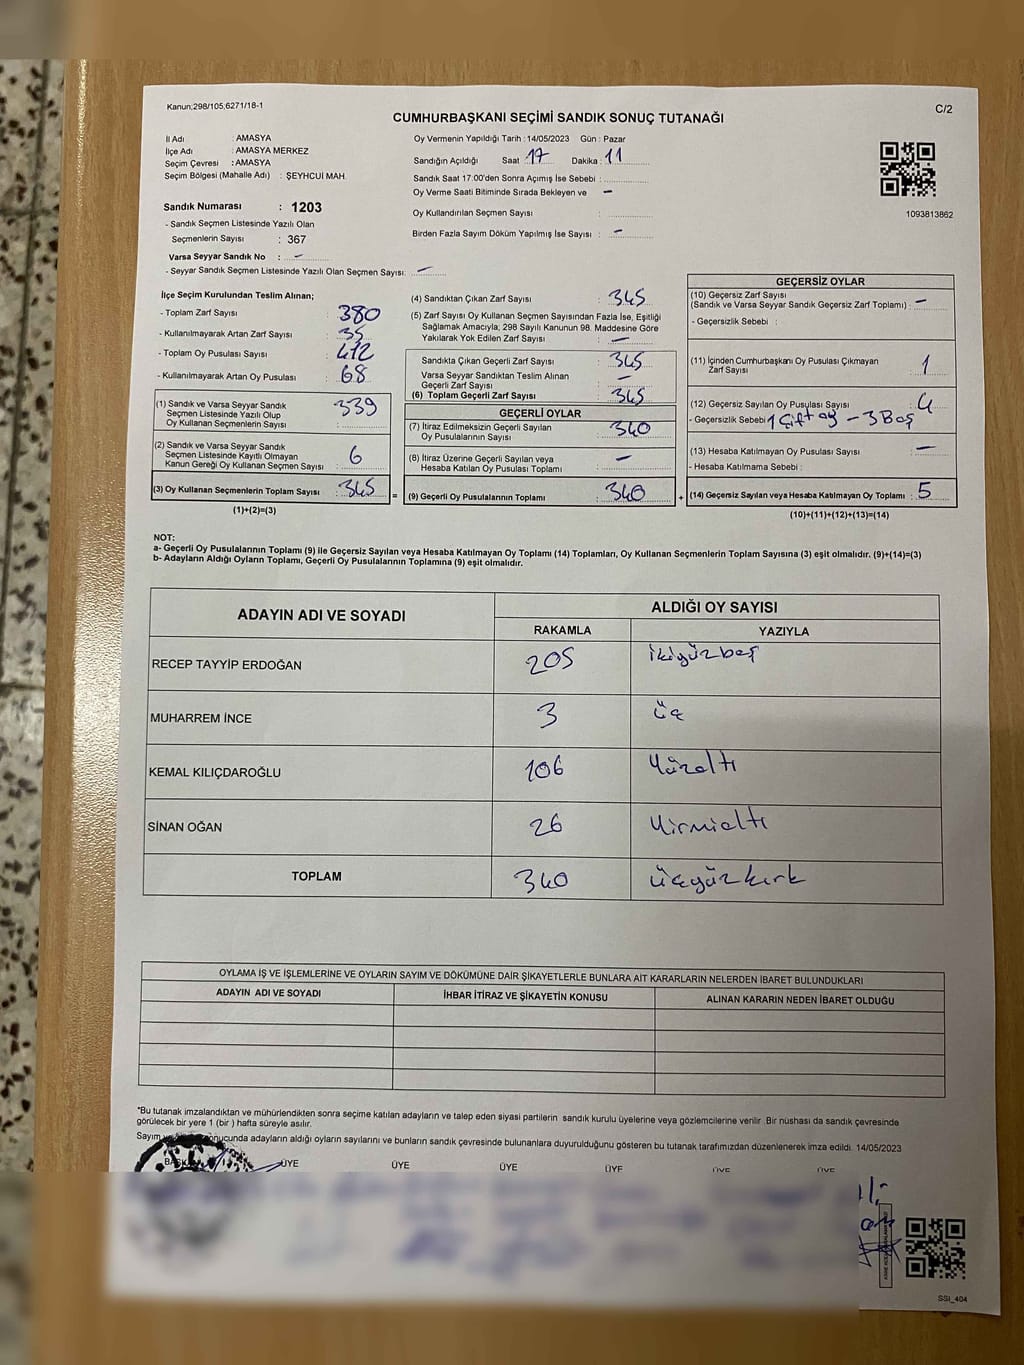 Kanun;298/105,6271/18-1
C/2
CUMHURBAŞKANI SEÇİMİ SANDIK SONUÇ TUTANAĞI
İl Adı : AMASYA
İlçe Adı : AMASYA MERKEZ
Seçim Çevresi : AMASYA
Seçim Bölgesi (Mahalle Adı) : ŞEYHCUİ MAH.
Oy Vermenin Yapıldığı Tarih : 14/05/2023 Gün : Pazar
Sandığın Açıldığı Saat : 17 Dakika : 11
Sandık Saat 17:00'den Sonra Açımış İse Sebebi :
Oy Verme Saati Bitiminde Sırada Bekleyen ve –
Oy Kullandırılan Seçmen Sayısı :
Birden Fazla Sayım Döküm Yapılmış İse Sayısı : –
1093813862
Sandık Numarası : 1203
- Sandık Seçmen Listesinde Yazılı Olan
Seçmenlerin Sayısı : 367
Varsa Seyyar Sandık No : –
- Seyyar Sandık Seçmen Listesinde Yazılı Olan Seçmen Sayısı. –
İlçe Seçim Kurulundan Teslim Alınan;
- Toplam Zarf Sayısı : 380
- Kullanılmayarak Artan Zarf Sayısı : 35
- Toplam Oy Pusulası Sayısı : 412
- Kullanılmayarak Artan Oy Pusulası : 68
(1) Sandık ve Varsa Seyyar Sandık
Seçmen Listesinde Yazılı Olup
Oy Kullanan Seçmenlerin Sayısı : 339
(2) Sandık ve Varsa Seyyar Sandık
Seçmen Listesinde Kayıtlı Olmayan
Kanun Gereği Oy Kullanan Seçmen Sayısı : 6
(3) Oy Kullanan Seçmenlerin Toplam Sayısı : 345
(1)+(2)=(3)
(4) Sandıktan Çıkan Zarf Sayısı : 345
(5) Zarf Sayısı Oy Kullanan Seçmen Sayısından Fazla İse, Eşitliği
Sağlamak Amacıyla; 298 Sayılı Kanunun 98. Maddesine Göre
Yakılarak Yok Edilen Zarf Sayısı : –
Sandıkta Çıkan Geçerli Zarf Sayısı : 345
Varsa Seyyar Sandıktan Teslim Alınan
Geçerli Zarf Sayısı : –
(6) Toplam Geçerli Zarf Sayısı : 345
GEÇERLİ OYLAR
(7) İtiraz Edilmeksizin Geçerli Sayılan
Oy Pusulalarının Sayısı : 340
(8) İtiraz Üzerine Geçerli Sayılan veya
Hesaba Katılan Oy Pusulası Toplamı : –
= (9) Geçerli Oy Pusulalarının Toplamı : 340
GEÇERSİZ OYLAR
(10) Geçersiz Zarf Sayısı
(Sandık ve Varsa Seyyar Sandık Geçersiz Zarf Toplamı) : –
- Geçersizlik Sebebi :
(11) İçinden Cumhurbaşkanı Oy Pusulası Çıkmayan
Zarf Sayısı : 1
(12) Geçersiz Sayılan Oy Pusulası Sayısı : 4
- Geçersizlik Sebebi 1 Çift oy – 3 Boş
(13) Hesaba Katılmayan Oy Pusulası Sayısı : –
- Hesaba Katılmama Sebebi :
+ (14) Geçersiz Sayılan veya Hesaba Katılmayan Oy Toplamı : 5
(10)+(11)+(12)+(13)=(14)
NOT:
a- Geçerli Oy Pusulalarının Toplamı (9) ile Geçersiz Sayılan veya Hesaba Katılmayan Oy Toplamı (14) Toplamları, Oy Kullanan Seçmenlerin Toplam Sayısına (3) eşit olmalıdır. (9)+(14)=(3)
b- Adayların Aldığı Oyların Toplamı, Geçerli Oy Pusulalarının Toplamına (9) eşit olmalıdır.
ADAYIN ADI VE SOYADI ALDIĞI OY SAYISI
RAKAMLA YAZIYLA
RECEP TAYYİP ERDOĞAN 205 ikiyüzbeş
MUHARREM İNCE 3 üç
KEMAL KILIÇDAROĞLU 106 Yüzaltı
SİNAN OĞAN 26 Yirmialtı
TOPLAM 340 üçyüzkırk
OYLAMA İŞ VE İŞLEMLERİNE VE OYLARIN SAYIM VE DÖKÜMÜNE DAİR ŞİKAYETLERLE BUNLARA AİT KARARLARIN NELERDEN İBARET BULUNDUKLARI
ADAYIN ADI VE SOYADI İHBAR İTİRAZ VE ŞİKAYETİN KONUSU ALINAN KARARIN NEDEN İBARET OLDUĞU
*Bu tutanak imzalandıktan ve mühürlendikten sonra seçime katılan adayların ve talep eden siyasi partilerin sandık kurulu üyelerine veya gözlemcilerine verilir. Bir nüshası da sandık çevresinde
görülecek bir yere 1 (bir ) hafta süreyle asılır.
Sayım sonucunda adayların aldığı oyların sayılarını ve bunların sandık çevresinde bulunanlara duyurulduğunu gösteren bu tutanak tarafımızdan düzenlenerek imza edildi. 14/05/2023
ÜYE ÜYE ÜYE ÜYE ÜYE ÜYE
SSI_404